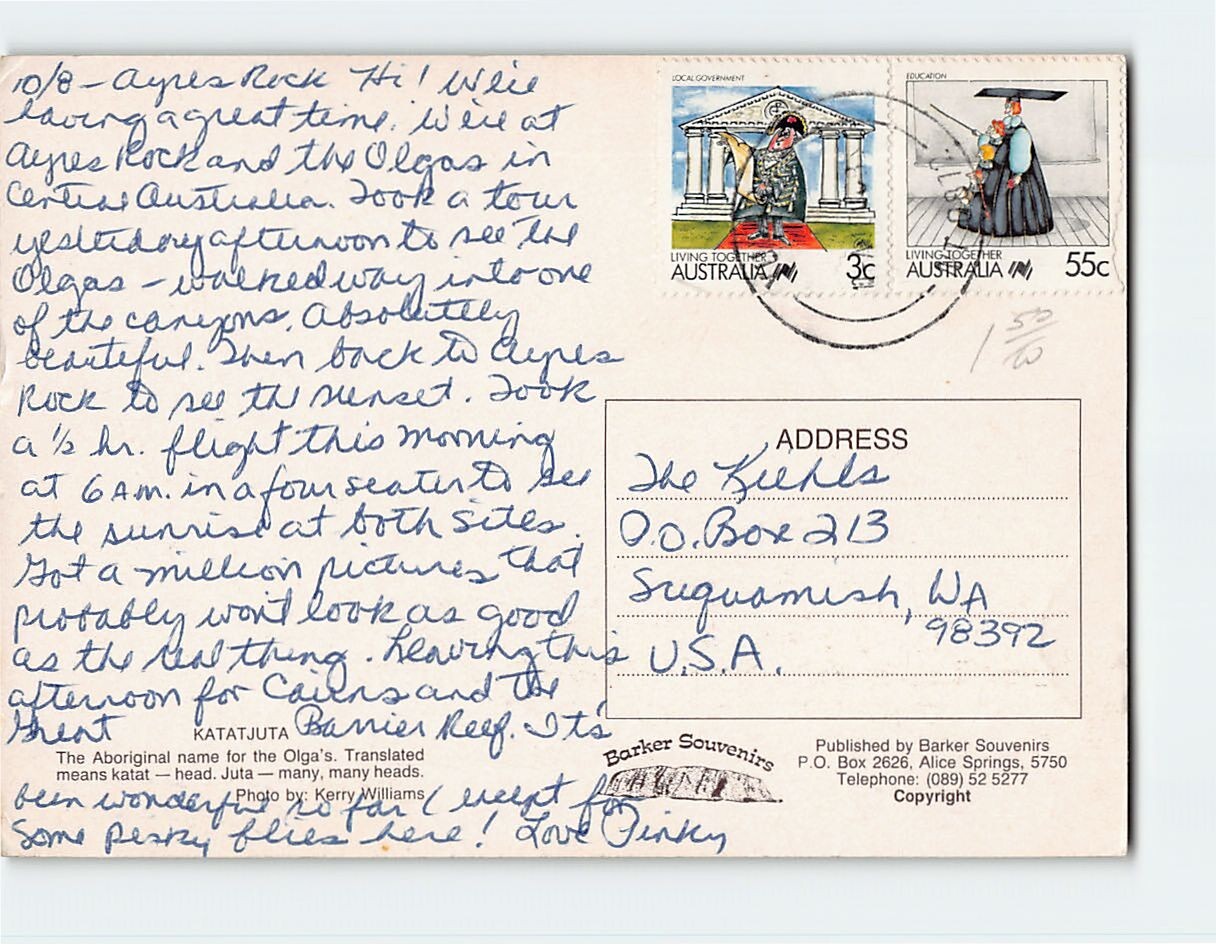 10/8 - Ayres Rock Hi! We're
having a great time. We're at
Ayres Rock and the Olgas in
Central Australia. Took a tour
yesterday afternoon to see the
Olgas - walked way into one
of the canyons. Absolutely
beautiful. Then back to Ayres
Rock to see the sunset. Took
a ½ hr. flight this morning
at 6 A.M. in a four seater to see
the sunrise at both sites.
Got a million pictures that
probably won't look as good
as the real thing. Leaving this
afternoon for Cairns and the
Great Barrier Reef. It's
been wonderful so far (except for
some pesky flies here! Love Pinky
KATATJUTA
The Aboriginal name for the Olga's. Translated
means katat — head. Juta — many, many heads.
Photo by: Kerry Williams
LOCAL GOVERNMENT
LIVING TOGETHER
AUSTRALIA 3c
EDUCATION
LIVING TOGETHER
AUSTRALIA 55c
1 50/00
ADDRESS
The Kiehls
P.O. Box 213
Suquamish, WA
98392
U.S.A.
Barker Souvenirs
Published by Barker Souvenirs
P.O. Box 2626, Alice Springs, 5750
Telephone: (089) 52 5277
Copyright